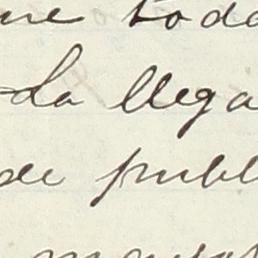 ue toda
La llega
de publ